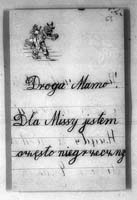 Droga Mamo!
Dla Missy jestem
często niegrzeczny